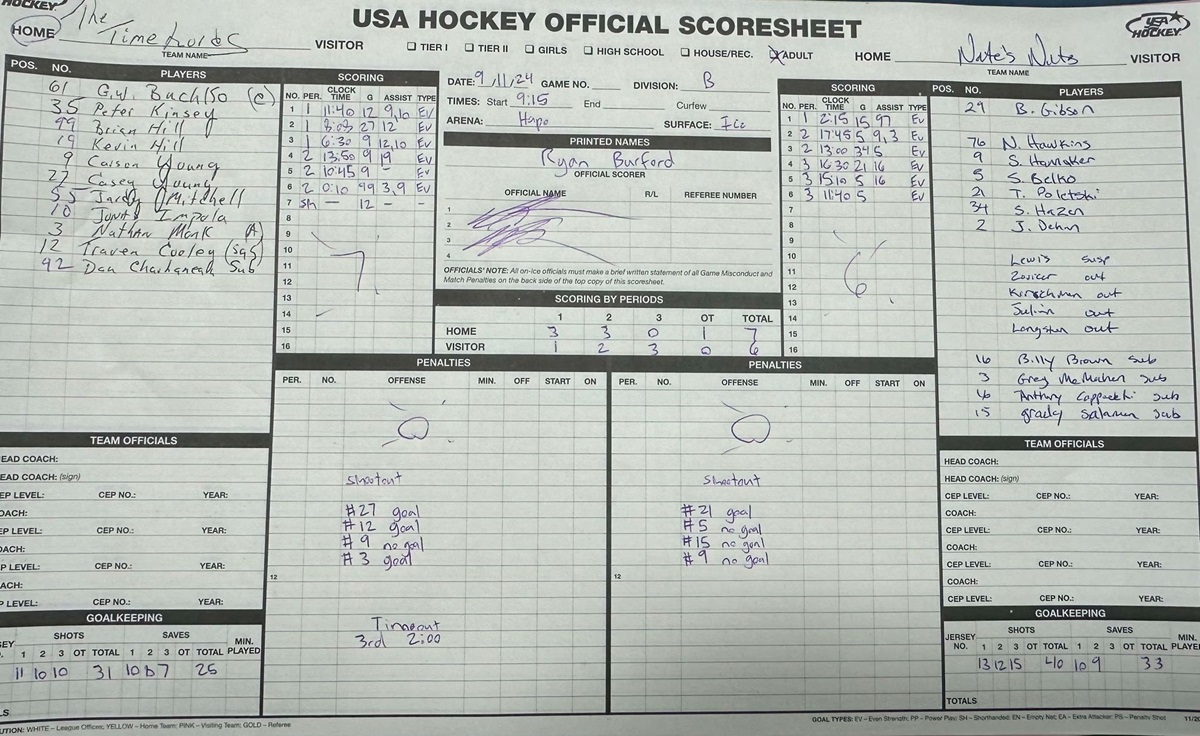 HOCKEY.
USA HOCKEY OFFICIAL SCORESHEET
USA HOCKEY
HOME The Timelords VISITOR
TEAM NAME
☐ TIER I ☐ TIER II ☐ GIRLS ☐ HIGH SCHOOL ☐ HOUSE/REC. ☒ ADULT
HOME Nate's Nuts VISITOR
TEAM NAME
POS. NO. PLAYERS
61 G.W. Buch/50 (C)
35 Peter Kinsey
99 Brian Hill
19 Kevin Hill
9 Carson Young
27 Casey Young
55 Jardy Mitchell
10 Junts Impola
3 Nathan Monk A
12 Traven Cooley (sub)
92 Dan Chachaneah Sub
SCORING
NO. PER. CLOCK TIME G ASSIST TYPE
1 1 11:40 12 9,10 Ev
2 1 8:08 27 12 Ev
3 1 6:30 9 12,10 Ev
4 2 13:50 9 19 Ev
5 2 10:45 9 - Ev
6 2 0:10 99 3,9 Ev
7 Sh — 12 - -
8
9
10
11
12
13
14
15
16
7
DATE: 9/11/24 GAME NO. DIVISION: B
TIMES: Start 9:15 End Curfew
ARENA: Hapo SURFACE: Ice
PRINTED NAMES
Ryan Burford
OFFICIAL SCORER
OFFICIAL NAME R/L REFEREE NUMBER
1
2
3
4
OFFICIALS' NOTE: All on-ice officials must make a brief written statement of all Game Misconduct and
Match Penalties on the back side of the top copy of this scoresheet.
SCORING BY PERIODS
1 2 3 OT TOTAL
HOME 3 3 0 1 7
VISITOR 1 2 3 0 6
SCORING
NO. PER. CLOCK TIME G ASSIST TYPE
1 1 2:15 15 97 Ev
2 2 17:45 5 9,3 Ev
3 2 13:00 34 5 Ev
4 3 16:30 21 16 Ev
5 3 15:10 5 16 Ev
6 3 11:40 5 Ev
7
8
9
10
11
12
13
14
15
16
6
POS. NO. PLAYERS
29 B. Gibson
76 N. Hawkins
9 S. Hamaker
5 S. Belko
21 T. Poletski
34 S. Hazen
2 J. Dehn
Lewis susp
out
Kirschman out
out
Langston out
16 Billy Brown sub
3 Greg McMahen sub
Anthony sub
15 grady Salamun sub
PENALTIES
PER. NO. OFFENSE MIN. OFF START ON
0
Shootout
#27 goal
#12 goal
#9 no goal
#3 goal
12
Timeout
3rd 2:00
PENALTIES
PER. NO. OFFENSE MIN. OFF START ON
0
Shootout
#21 goal
#5 no goal
#15 no goal
#9 no goal
12
TEAM OFFICIALS
EAD COACH:
EAD COACH: (sign)
EP LEVEL: CEP NO.: YEAR:
OACH:
EP LEVEL: CEP NO.: YEAR:
OACH:
EP LEVEL: CEP NO.: YEAR:
ACH:
P LEVEL: CEP NO.: YEAR:
GOALKEEPING
SEY SHOTS SAVES MIN. PLAYED
1 2 3 OT TOTAL 1 2 3 OT TOTAL
11 10 10 31 10 7 25
LS
TEAM OFFICIALS
HEAD COACH:
HEAD COACH: (sign)
CEP LEVEL: CEP NO.: YEAR:
COACH:
CEP LEVEL: CEP NO.: YEAR:
COACH:
CEP LEVEL: CEP NO.: YEAR:
COACH:
CEP LEVEL: CEP NO.: YEAR:
GOALKEEPING
JERSEY NO. SHOTS SAVES MIN. PLAYE
1 2 3 OT TOTAL 1 2 3 OT TOTAL
13 12 15 40 10 9 33
TOTALS
UTION: WHITE – League Offices; YELLOW – Home Team; PINK – Visiting Team; GOLD – Referee
GOAL TYPES: EV – Even Strength; PP – Power Play; SH – Shorthanded; EN – Empty Net; EA – Extra Attacker; PS – Penalty Shot 11/20